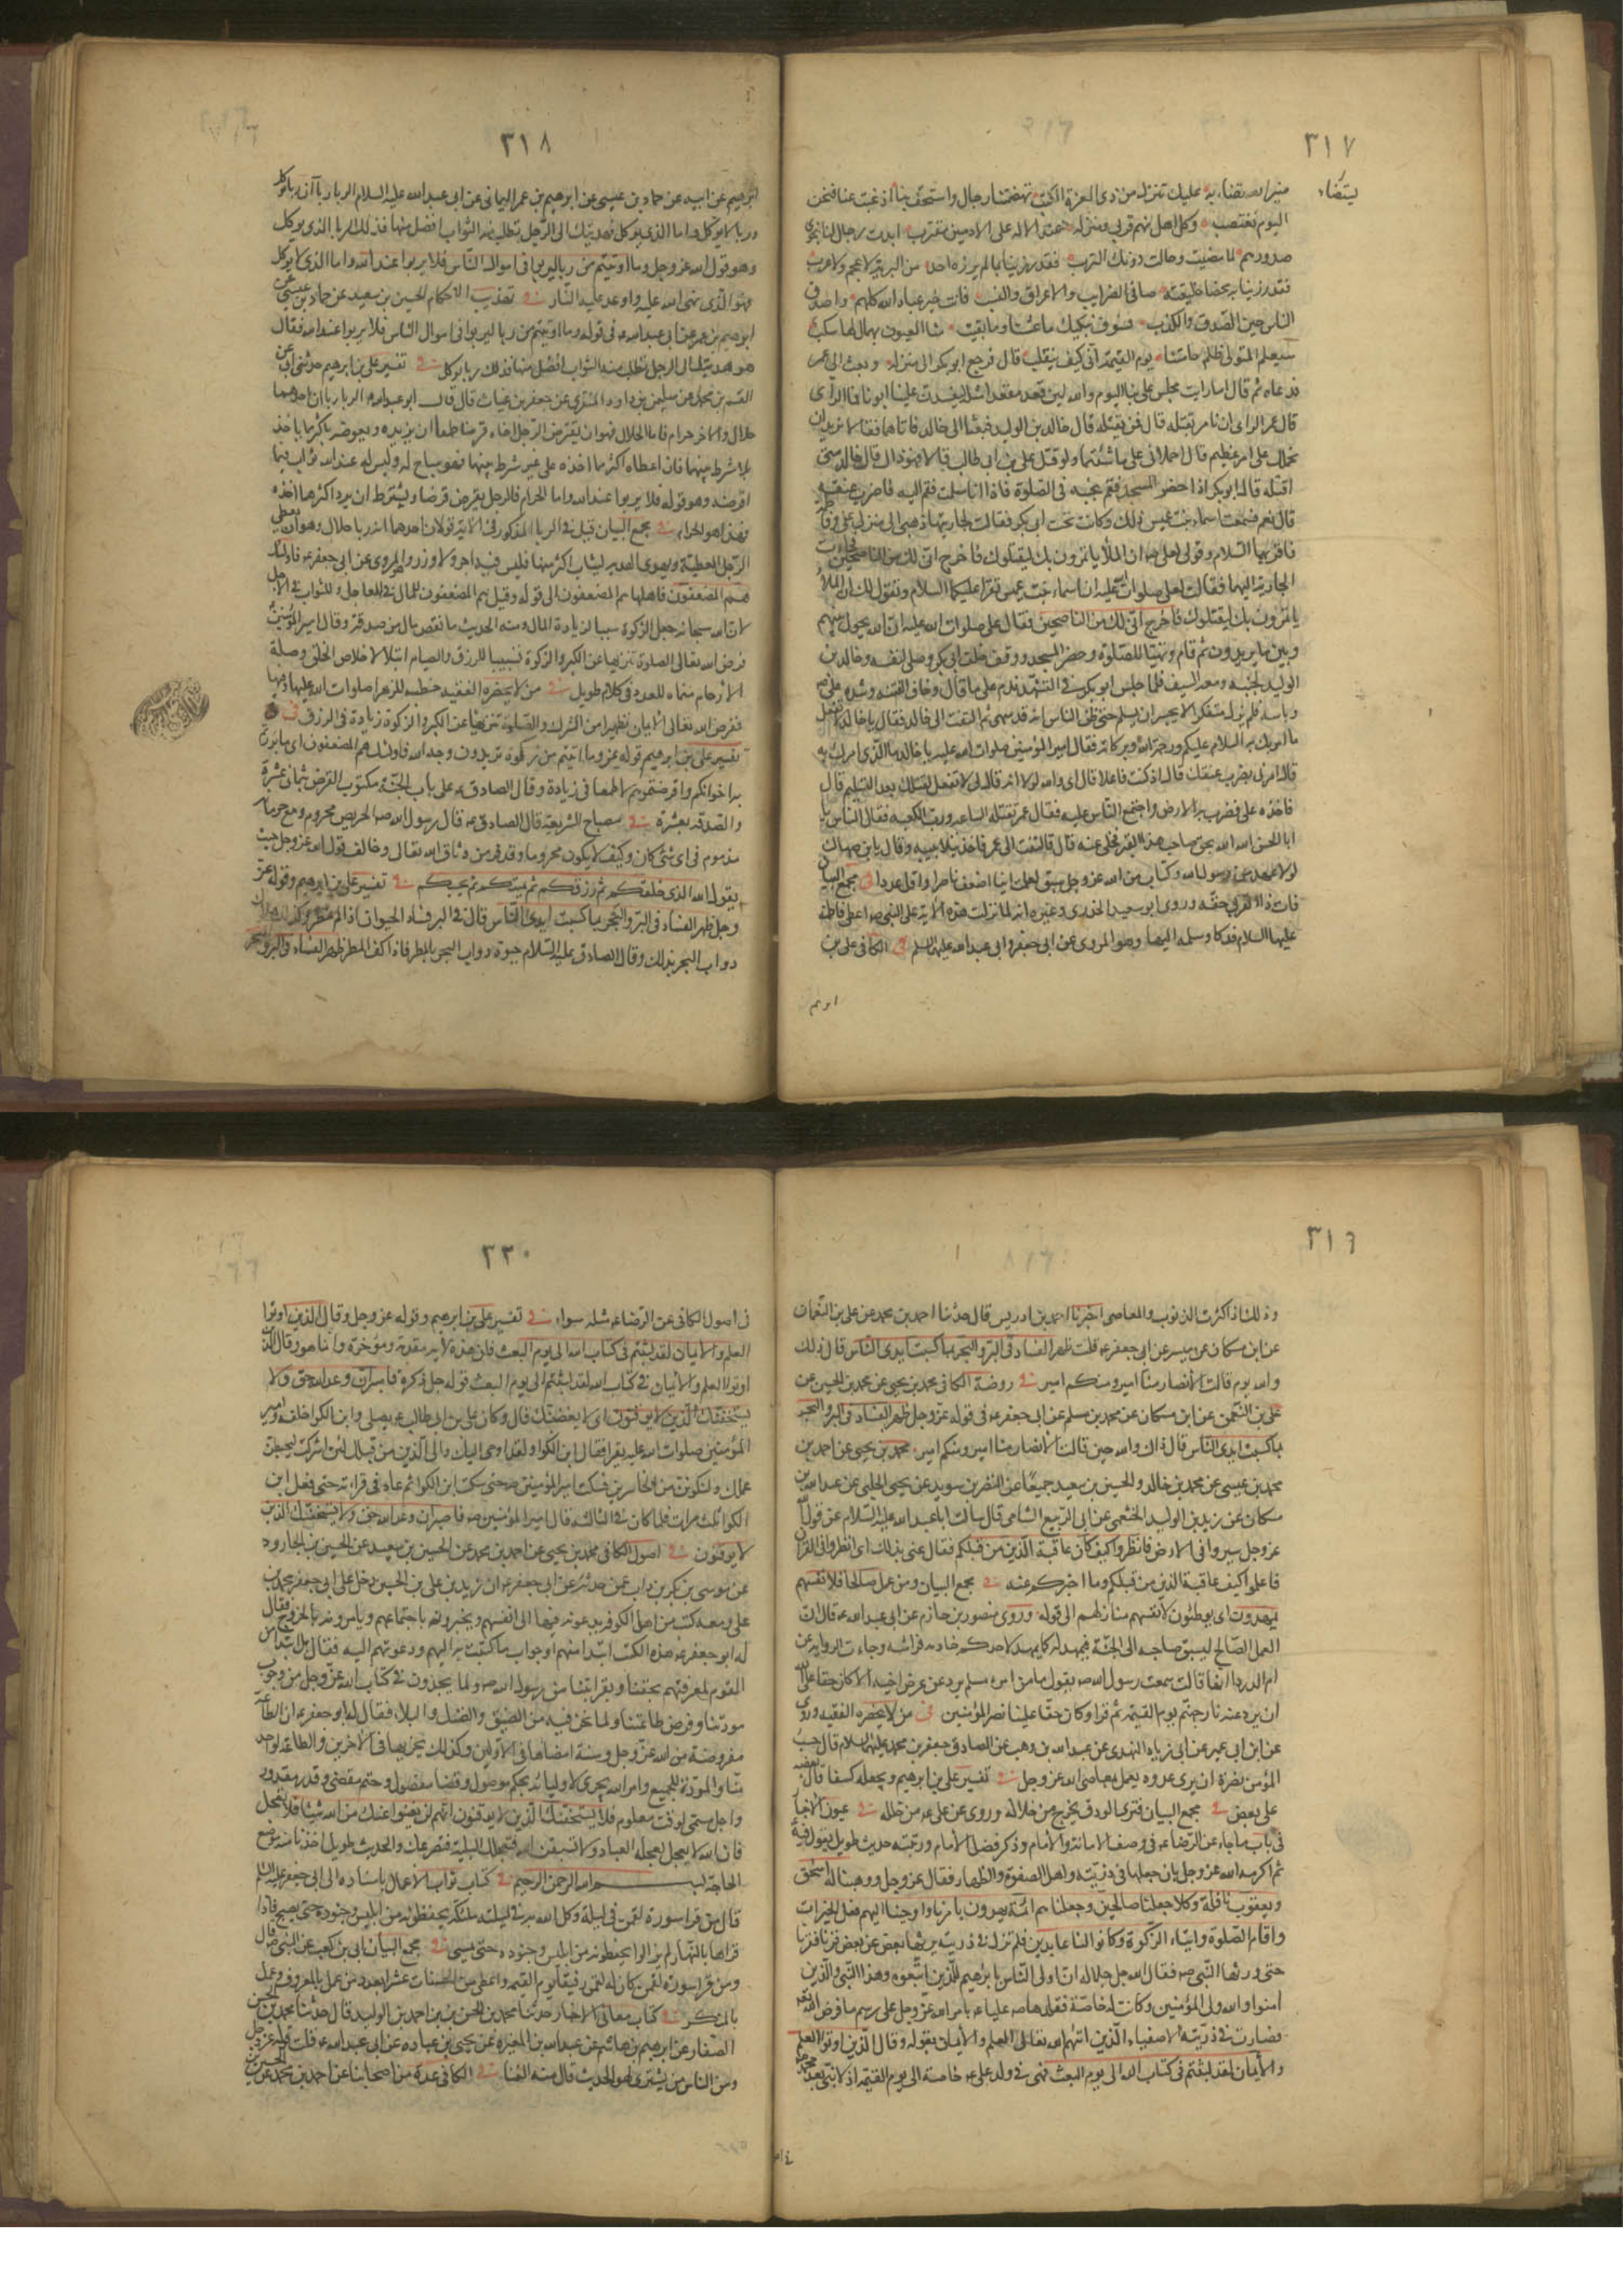 ٣١٧
يستضاء
منير الله يستضاء به عليك تنزل من ذى العزة الكتب تهضمتنا رجال واستخف بنا اذ غبت عنا فنحن
اليوم نغتصب وكل اهل لهم قربى ومنزلة عند الاله على الادنين مقترب ابدت رجال لنا نجوى
صدورهم لما مضيت وحالت دونك الترب فقد رزينا بما لم يرزه احد من البرية لا عجم ولا عرب
فقد رزينا به محضا خليقته صافى الضرايب والاعراق والنسب فانت خير عباد الله كلهم واصدق
الناس حين الصدق والكذب فسوف نبكيك ما عشنا وما بقيت منا العيون بهمال لها سكب
سيعلم المتولى ظلم حامتنا يوم القيمة انى كيف ينقلب قال فرجع ابو بكر الى منزله وبعث الى عمر
فدعاه ثم قال اما رايت مجلس على بنا اليوم والله لين قعد مقعدا مثله ليفسدن علينا امرنا فما الراى
قال عمر الراى ان نامر بقتله قال فمن يقتله قال خالد بن الوليد فبعثنا الى خالد فاتاهما فقالا نريد ان
نحملك على امر عظيم قال احملانى على ما شئتما ولو قتل على بن ابى طالب قالا فهو ذاك قال خالد متى
اقتله قال ابو بكر اذا حضر المسجد فقم بجنبه فى الصلوة فاذا انا سلمت فقم اليه فاضرب عنقه
قال نعم فسمعت اسماء بنت عميس ذلك وكانت تحت ابى بكر فقالت لجاريتها اذهبى الى منزل على وفاطمة
فاقريهما السلام وقولى لعلى ان الملا ياتمرون بك ليقتلوك فاخرج انى لك من الناصحين فجاءت
الجارية اليهما فقالت لعلى صلوات الله عليه ان اسماء بنت عميس تقرا عليكما السلام وتقول لك ان الملا
ياتمرون بك ليقتلوك فاخرج انى لك من الناصحين فقال على صلوات الله عليه ان الله يحول بينهم
وبين ما يريدون ثم قام وتهيئا للصلوة وحضر المسجد ووقف خلف ابى بكر وصلى لنفسه وخالد بن
الوليد بجنبه ومعه السيف فلما جلس ابو بكر فى التشهد ندم على ما قال وخاف الفتنة وشدة على
وباسه فلم يزل متفكرا لا يجسر ان يسلم حتى ظن الناس انه قد سهى ثم التفت الى خالد فقال يا خالد لا تفعل
ما امرتك به السلام عليكم ورحمة الله وبركاته فقال امير المؤمنين صلوات الله عليه يا خالد ما الذى امرك به
قال امرنى بضرب عنقك قال اوكنت فاعلا قال اى والله لولا انه قال لى لا تفعل لقتلتك بعد التسليم قال
فاخذه على فضرب به الارض واجتمع الناس عليه فقال عمر يقتله الساعة ورب الكعبة فقال الناس يا
ابا الحسن الله الله بحق صاحب هذا القبر فخلى عنه قال فالتفت الى عمر فاخذ بتلابيبه وقال يا بن صهاك
لولا عهد من رسول الله وكتاب من الله عز وجل سبق لعلمت اينا اضعف ناصرا واقل عددا فى مجمع البيان
فات ذا القربى حقه وروى ابو سعيد الخدرى وغيره انه لما نزلت هذه الاية على النبى ص اعطى فاطمة
عليها السلام فدكا وسلمه اليها وهو المروى عن ابى جعفر وابى عبد الله عليهما السلم فى الكافى على بن
ابرهيم
٣١٨
ابرهيم عن ابيه عن حماد بن عيسى عن ابرهيم بن عمر اليمانى عن ابى عبد الله عليه السلام الربا رباآن ربا يوكل
وربا لا يوكل فاما الذى يوكل فهديتك الى الرجل تطلب منه الثواب افضل منها فذلك الربا الذى يوكل
وهو قول الله عز وجل وما اوتيتم من ربا ليربوا فى اموال الناس فلا يربوا عند الله واما الذى لا يوكل
فهو الذى نهى الله عليه واوعد عليه النار فى تهذيب الاحكام الحسين بن سعيد عن حماد بن عيسى عن
ابرهيم بن عمر عن ابى عبد الله ع فى قوله وما اوتيتم من ربا ليربوا فى اموال الناس فلا يربوا عند الله فقال
هو هديتك الى الرجل تطلب منه الثواب افضل منها فذلك ربا يوكل فى تفسير على بن ابرهيم حدثنى ابى عن
القسم بن محمد عن سليمن بن داود المنقرى عن حفص بن غياث قال قال ابو عبد الله ع الربا رباآن احدهما
حلال والاخر حرام فاما الحلال فهو ان يقرض الرجل اخاه قرضا طمعا ان يزيده ويعوضه باكثر ما ياخذه
بلا شرط بينهما فان اعطاه اكثر مما اخذه على غير شرط بينهما فهو مباح له وليس له عند الله ثواب فيما
اقرضه وهو قوله فلا يربوا عند الله واما الحرام فالرجل يقرض قرضا ويشترط ان يرد اكثر مما اخذه
فهذا هو الحرام فى مجمع البيان قيل فى الربا المذكور فى الاية قولان احدهما انه ربا حلال وهو ان يعطى
الرجل العطية ويهدى الهدية ليثاب اكثر منها فليس فيه اجر ولا وزر وهو المروى عن ابى جعفر ع فاولئك
هم المضعفون فاهلها هم المضعفون الى قوله وقيل هم المضعفون للمال فى العاجل وللثواب فى الاجل
لان الله سبحانه جعل الزكوة سببا لزيادة المال ومنه الحديث ما نقص مال من صدقة وقال امير المؤمنين
فرض الله تعالى الصلوة تنزيها عن الكبر والزكوة تسبيبا للرزق والصيام ابتلاء لاخلاص الخلق وصلة
الارحام منماة للعدد فى كلام طويل فى من لا يحضره الفقيه خطبه للزهرا صلوات الله عليها وفيها
ففرض الله تعالى الايمان تطهيرا من الشرك والصلوة تنزيها عن الكبر والزكوة زيادة فى الرزق فى
تفسير على بن ابرهيم قوله عز وما اتيتم من زكوة تريدون وجه الله فاولئك هم المضعفون اى ما بررتم
به اخوانكم واقرضتموهم لا طمعا فى زيادة وقال الصادق ع على باب الجنة مكتوب القرض بثمانى عشرة
والصدقة بعشرة فى مصباح الشريعة قال الصادق ع قال رسول الله ص الحريص محروم ومع حرمانه
مذموم فى اى شئ كان وكيف لا يكون محروما وقد فر من وثاق الله تعالى وخالف قول الله عز وجل حيث
يقول الله الذى خلقكم ثم رزقكم ثم يميتكم ثم يحييكم فى تفسير على بن ابرهيم وقوله عز
وجل ظهر الفساد فى البر والبحر بما كسبت ايدى الناس قال فى البر فساد الحيوان اذا لم تمطر وكذلك هلاك
دواب البحر بذلك وقال الصادق عليه السلام حيوة دواب البحر بالمطر فاذا كف المطر ظهر الفساد فى البر والبحر
٣١٩
وذلك اذا كثرت الذنوب والمعاصى اخبرنا احمد بن ادريس قال حدثنا احمد بن محمد عن على بن النعمان
عن ابن مسكان عن ميسر عن ابى جعفر ع قلت ظهر الفساد فى البر والبحر بما كسبت ايدى الناس قال ذلك
والله يوم قالت الانصار منا امير ومنكم امير فى روضة الكافى محمد بن يحيى عن محمد بن الحسين عن
على بن النعمن عن ابن مسكان عن محمد بن مسلم عن ابى جعفر ع فى قوله عز وجل ظهر الفساد فى البر والبحر
بما كسبت ايدى الناس قال ذاك والله حين قالت الانصار منا امير ومنكم امير محمد بن يحيى عن احمد بن
محمد بن عيسى عن محمد بن خالد والحسين بن سعيد جميعا عن النضر بن سويد عن يحيى الحلبى عن عبد الله بن
مسكان عن زيد بن الوليد الخثعمى عن ابى الربيع الشامى قال سالت ابا عبد الله عليه السلام عن قول الله
عز وجل سيروا فى الارض فانظروا كيف كان عاقبة الذين من قبلكم فقال عنى بذلك اى انظروا فى القران
فاعلموا كيف عاقبة الذين من قبلكم وما اخبركم عنه فى مجمع البيان ومن عمل صالحا فلانفسهم
يمهدون اى يوطئون لانفسهم منازلهم الى قوله وروى منصور بن حازم عن ابى عبد الله ع قال ان
العمل الصالح ليسبق صاحبه الى الجنة فيمهد له كما يمهد لاحدكم خادمه فراشه وجاءت الرواية عن
ام الدرداء انها قالت سمعت رسول الله ص يقول ما من امرء مسلم يرد عن عرض اخيه الا كان حقا على الله
ان يرد عنه نار جهنم يوم القيمة ثم قرا وكان حقا علينا نصر المؤمنين فى من لا يحضره الفقيه وروى
عن ابن ابى عمير عن ابى زياد النهدى عن عبد الله بن وهب عن الصادق جعفر بن محمد عليهما السلام قال حسب
المؤمن نصرة ان يرى عدوه يعمل بمعاصى الله عز وجل فى تفسير على بن ابرهيم ويجعله كسفا قال بعضه
على بعض فى مجمع البيان فترى الودق يخرج من خلاله وروى عن على ع من خلله فى عيون الاخبار
فى باب ما جاء عن الرضا ع فى وصف الامامة والامام وذكر فضل الامام ورتبته حديث طويل يقول فيه
ثم اكرمه الله عز وجل بان جعلها فى ذريته واهل الصفوة والطهارة فقال عز وجل ووهبنا له اسحق
ويعقوب نافلة وكلا جعلنا صالحين وجعلناهم ائمة يهدون بامرنا واوحينا اليهم فعل الخيرات
واقام الصلوة وايتاء الزكوة وكانوا لنا عابدين فلم تزل فى ذريته يرثها بعض عن بعض قرنا فقرنا
حتى ورثها النبى ص فقال الله جل جلاله ان اولى الناس بابرهيم للذين اتبعوه وهذا النبى والذين
امنوا والله ولى المؤمنين وكانت له خاصة فقلدها ص عليا ع بامر الله عز وجل على رسم ما فرض الله
فصارت فى ذريته الاصفياء الذين اتاهم الله تعالى العلم والايمان بقوله وقال الذين اوتوا العلم
والايمان لقد لبثتم فى كتاب الله الى يوم البعث فهى فى ولد على ع خاصة الى يوم القيمة اذ لا نبى بعد محمد
٣٢٠
فى اصول الكافى عن الرضا ع مثله سواء فى تفسير على بن ابرهيم وقوله عز وجل وقال الذين اوتوا
العلم والايمان لقد لبثتم فى كتاب الله الى يوم البعث فان هذه الاية مقدمة ومؤخرة وانما هو وقال الذين
اوتوا العلم والايمان فى كتاب الله لقد لبثتم الى يوم البعث قوله جل ذكره فاصبر ان وعد الله حق ولا
يستخفنك الذين لا يوقنون اى لا يغضبنك قال وكان على بن ابى طالب ع يصلى وابن الكوا خلفه وامير
المؤمنين صلوات الله عليه يقرا فقال ابن الكوا ولقد اوحى اليك والى الذين من قبلك لئن اشركت ليحبطن
عملك ولتكونن من الخاسرين فسكت امير المؤمنين ص حتى سكت ابن الكوا ثم عاد فى قراءته حتى فعل ابن
الكوا ثلث مرات فلما كان فى الثالثة قال امير المؤمنين ص فاصبر ان وعد الله حق ولا يستخفنك الذين
لا يوقنون فى اصول الكافى محمد بن يحيى عن احمد بن محمد عن الحسين بن سعيد عن الحسين بن الجارود
عن موسى بن بكر بن داب عمن حدثه عن ابى جعفر ع ان زيد بن على بن الحسين دخل على ابى جعفر محمد بن
على ومعه كتب من اهل الكوفة يدعونه فيها الى انفسهم ويخبرونه باجتماعهم ويامرونه بالخروج فقال
له ابو جعفر ع هذه الكتب ابتداء منهم او جواب ما كتبت به اليهم ودعوتهم اليه فقال بل ابتداء من
القوم لمعرفتهم بحقنا وبقرابتنا من رسول الله ص ولما يجدون فى كتاب الله عز وجل من وجوب
مودتنا وفرض طاعتنا ولما نحن فيه من الضيق والضنك والبلاء فقال له ابو جعفر ع ان الطاعة
مفروضة من الله عز وجل وسنة امضاها فى الاولين وكذلك يجريها فى الاخرين والطاعة لواحد
منا والمودة للجميع وامر الله يجرى لاوليائه بحكم موصول وقضاء مفصول وحتم مقضى وقدر مقدور
واجل مسمى لوقت معلوم فلا يستخفنك الذين لا يوقنون انهم لن يغنوا عنك من الله شيئا فلا تعجل
فان الله لا يعجل لعجلة العباد ولا تسبقن الله فتعجلك البلية فتصرعك والحديث طويل اخذنا منه موضع
الحاجة بسم الله الرحمن الرحيم فى كتاب ثواب الاعمال باسناده الى ابى جعفر عليه السلم
قال من قرا سورة لقمن فى ليلة وكل الله به فى ليلته ملئكة يحفظونه من ابليس وجنوده حتى يصبح فاذا
قراها بالنهار لم يزالوا يحفظونه من ابليس وجنوده حتى يمسى فى مجمع البيان ابى بن كعب عن النبى ص قال
ومن قرا سورة لقمن كان له لقمن رفيقا يوم القيمة واعطى من الحسنات عشرا بعدد من عمل بالمعروف وعمل
بالمنكر فى كتاب معانى الاخبار حدثنا محمد بن الحسن بن احمد بن الوليد قال حدثنا محمد بن الحسن
الصفار عن ابرهيم بن هاشم عن عبد الله بن المغيرة عن يحيى بن عبادة عن ابى عبد الله ع قلت قوله عز وجل
ومن الناس من يشترى لهو الحديث قال منه الغنا فى الكافى عدة من اصحابنا عن احمد بن محمد عن